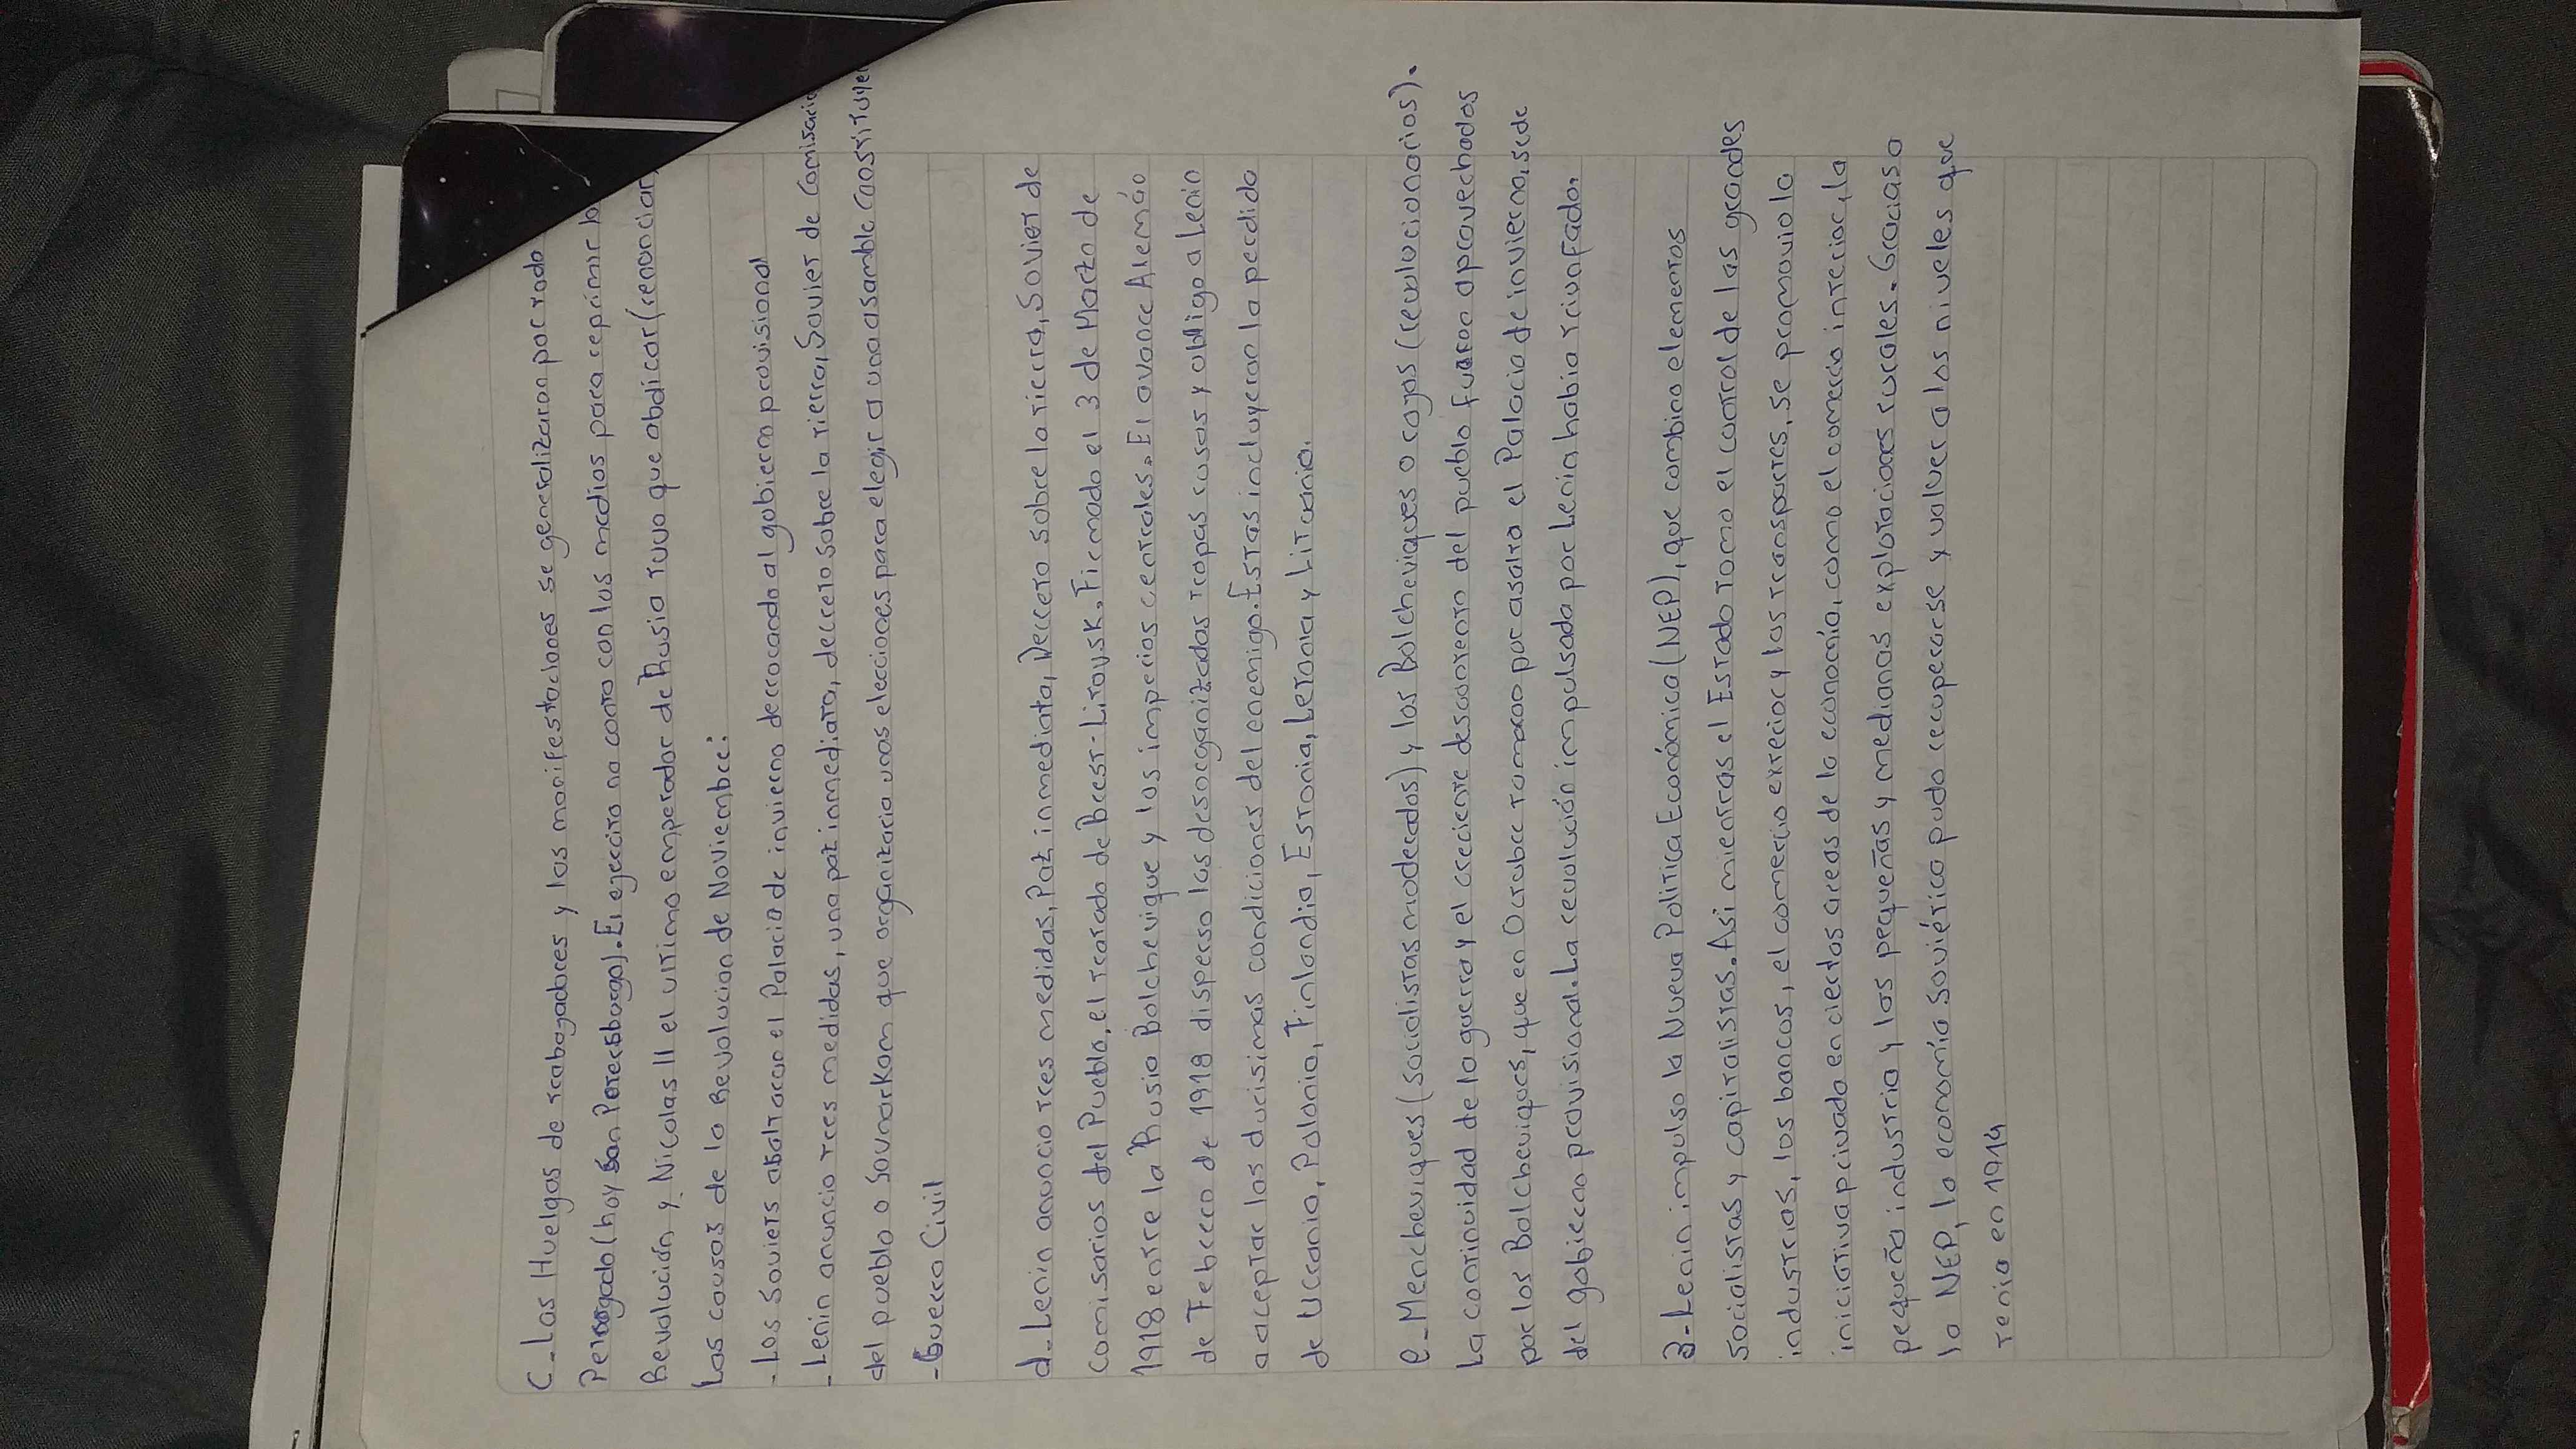 C-Las Huelgas de trabagadores y las manifestaciones se generalizaron por todo
(hoy San Petersburgo). El ejercito no conto con los medios para reprimir la
Revolución y Nicolas II el ultimo emperador de Rusia tuvo que abdicar (renunciar
Las causas de la Revolucion de Noviembre:
- Los Soviets asaltaron el Palacio de invierno derrocando al gobierno provisional
- Lenin anuncio tres medidas, una paz inmediata, decreto sobre la tierra, Soviet de Comisario
del pueblo o Sovnarkom que organizaria unas elecciones para elegir a una asamble Constituyen
- Guerra Civil
d-Lenin anuncio tres medidas, Paz inmediata, Decreto sobre la tierra, Soviet de
comisarios del Pueblo, el tratado de Brest-Litovsk. Firmado el 3 de Marzo de
1918 entre la Rusia Bolchevique y los imperios centrales. El avance Alemán
de Febrero de 1918 disperso las desorganizadas tropas rusas y obligo a Lenin
a aceptar las durisimas condiciones del enemigo. Estas incluyeron la perdida
de Ucrania, Polonia, Finlandia, Estonia, Letonia y Lituania.
e-Mencheviques (socialistas moderados) y los Bolcheviques o rojos (revolucionarios).
La continuidad de la guerra y el creciente descontento del pueblo fueron aprovechados
por los Bolcheviques, que en Octubre tomaron por asalto el Palacio de invierno, sede
del gobierno provisional. La revolución impulsada por Lenin habia triunfado.
3-Lenin impulso la Nueva Politica Económica (NEP), que combino elementos
Socialistas y capitalistas. Asi mientras el Estado tomo el control de las grandes
industrias, los bancos, el comercio exterior y los transportes, se promovio la
iniciativa privada en ciertas areas de la economía, como el comercio interior, la
pequeña industria y las pequeñas y medianas explotaciones rurales. Gracias a
la NEP, la economía Soviética pudo recuperarse y volver a los niveles que
tenia en 1914